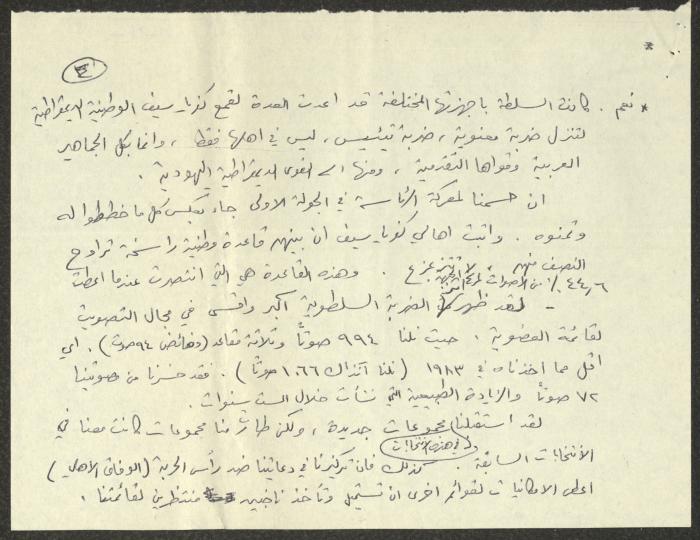 ٤
* نعم . كانت السلطة باجهزتها المختلفة قد اعدت العدة لقمع كفرياسيف الوطنية الديمقراطية
لتنزل ضربة معنوية ، ضربة تيئيس ، ليس في اهلها فقط ، وانما بكل الجماهير
العربية وقواها التقدمية ، ومنها الى القوى الديمقراطية اليهودية .
ان حسمنا لمعركة الرئاسة في الجولة الاولى جاء بعكس كل ما خططوا له
وتمنوه . واثبت اهالي كفرياسيف ان بينهم قاعدة وطنية راسخة تراوح
النصف منهم لا تتزعزع . وهذه القاعدة هي التي انتصرت عندما اعطت
٤٤,٦٪ من الاصوات
- لقد ظهرت الضربة السلطوية اكبر واقسى في مجال التصويت
لقائمة العضوية . حيث نلنا ٩٩٤ صوتاً وثلاثة مقاعد (وفائض ٩٤ صوت) . اي
اقل مما اخذناه في ١٩٨٣ (نلنا آنذاك ١٠٦٦ صوتاً) . فقد خسرنا من صوتينا
٧٢ صوتاً والزيادة الطبيعية التي نشأت خلال الست سنوات .
لقد استقبلنا مجموعات جديدة ، ولكن طارت منا مجموعات كانت معنا في
الانتخابات السابقة . في هذه الانتخابات كذلك فان تركيزنا في دعايتنا ضد رأس الحربة (الوفاق الاهلي)
اعطى الامكانيات لقوائم اخرى ان تشتغل وتأخذ ناخبين منتظرين لقائمتنا .